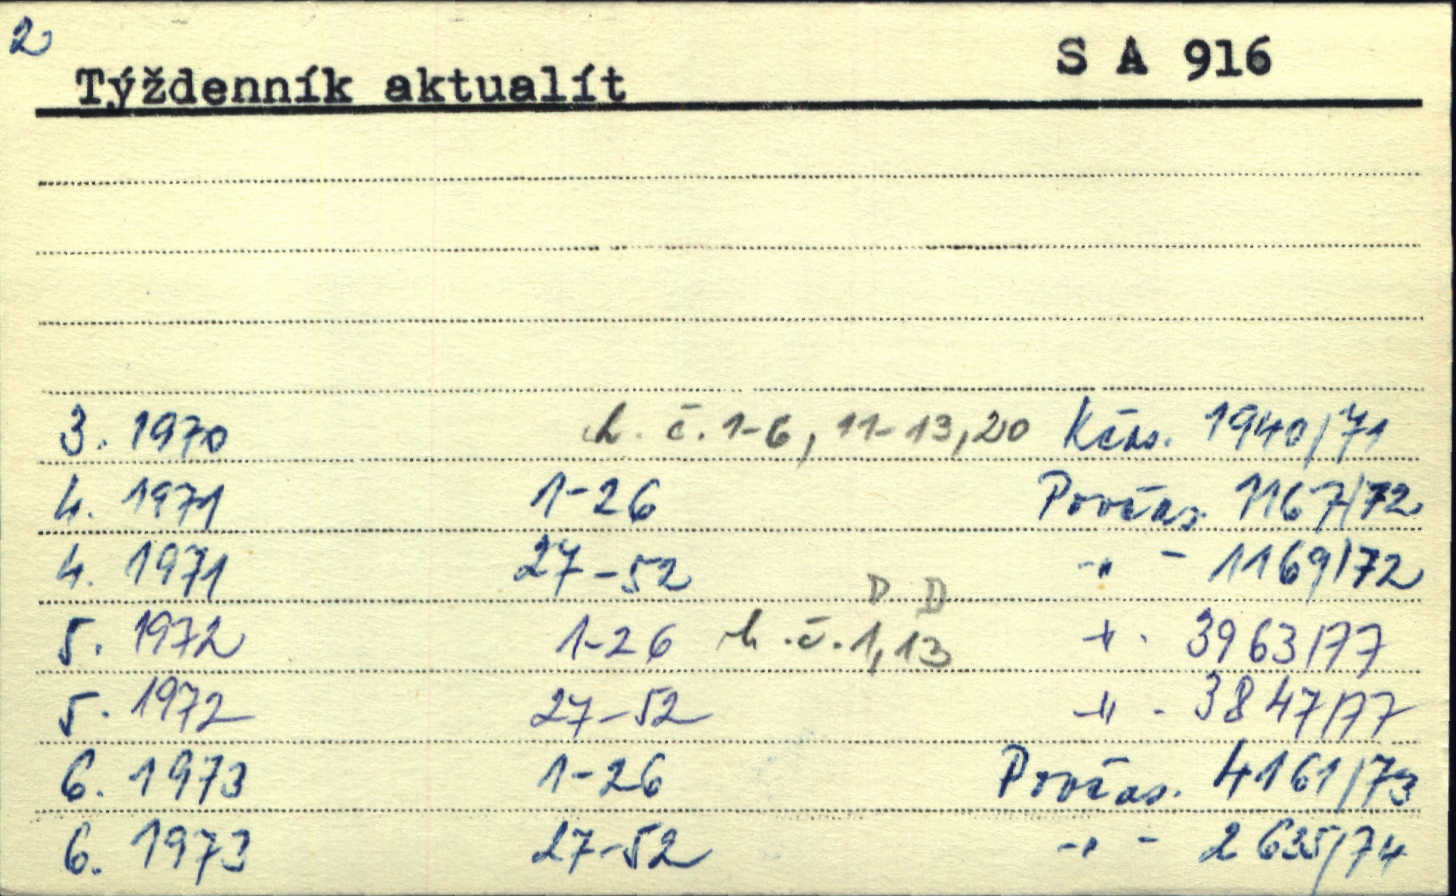 2
Týždenník aktualít S A 916
3. 1970 ch. č. 1-6, 11-13, 20 Kčas. 1940/71
4. 1971 1-26 Povčas. 1167/72
4. 1971 27-52 -"- 1169/72
D D
5. 1972 1-26 ch. č. 1, 13 -"- 3963/77
5. 1972 27-52 -"- 3847/77
6. 1973 1-26 Povčas. 4161/73
6. 1973 27-52 -"- 2635/74